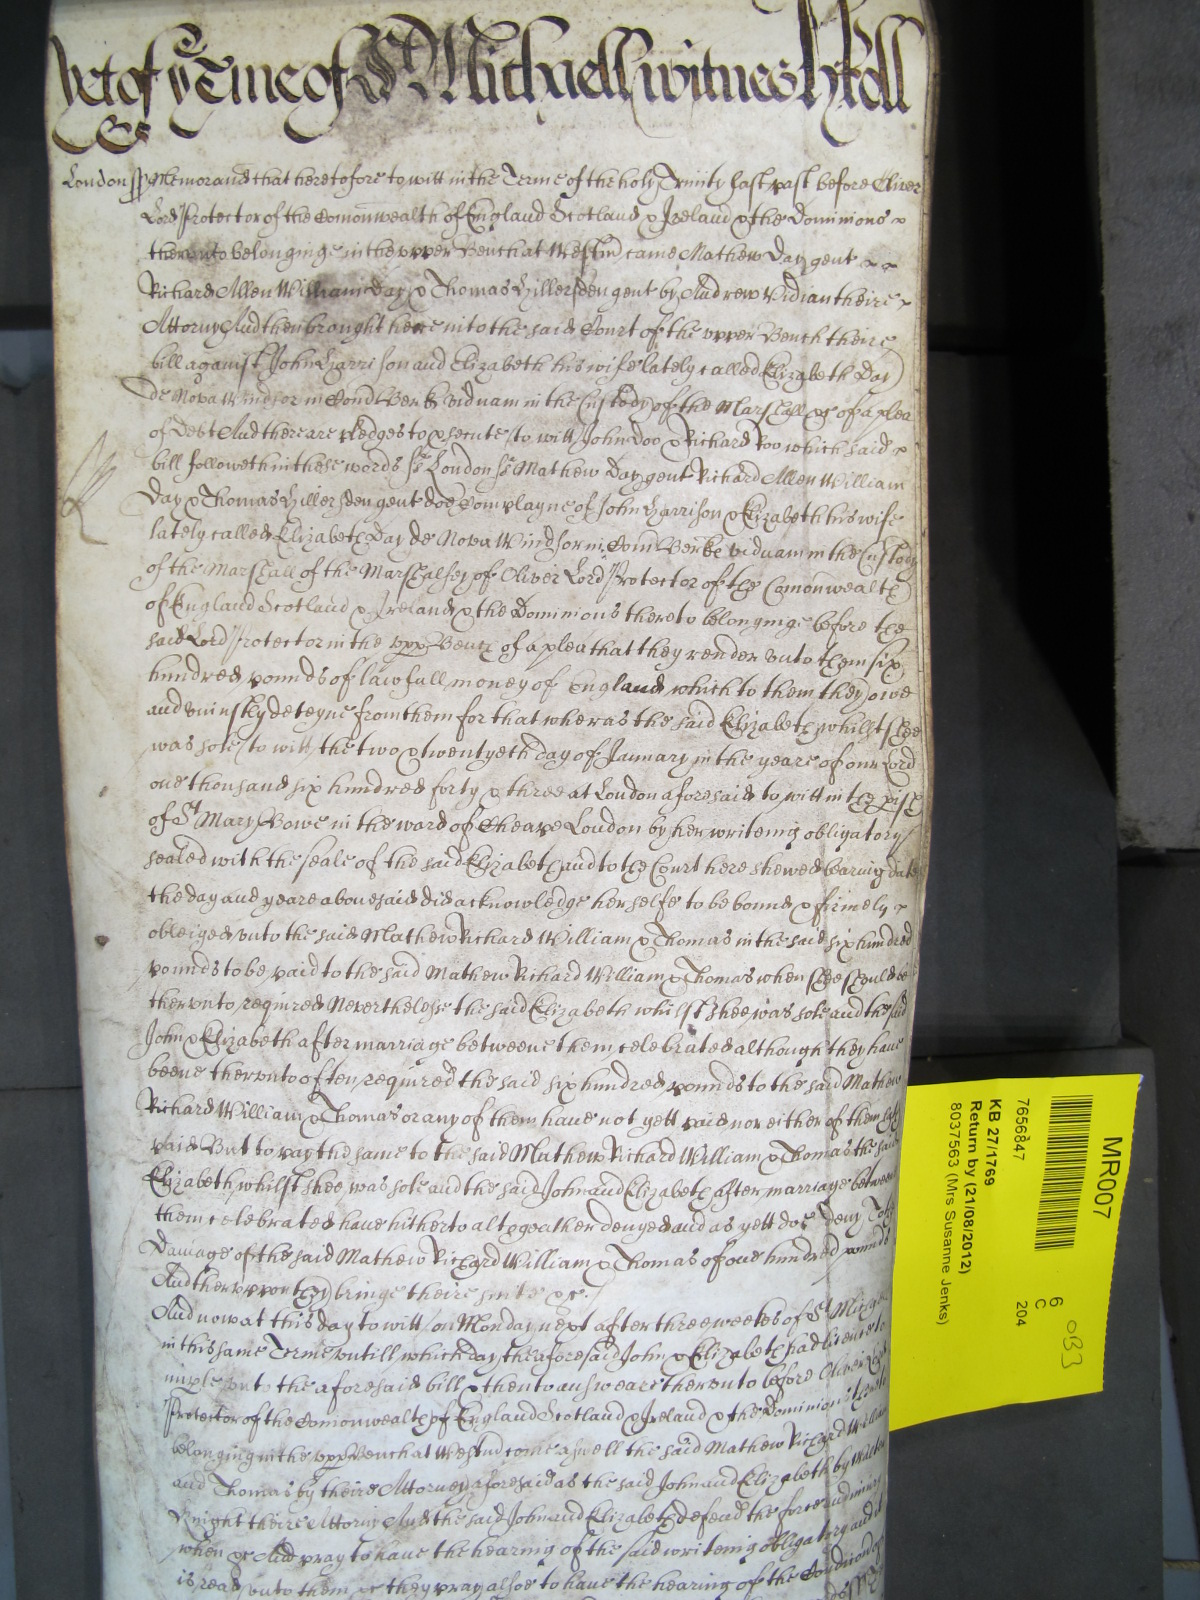 yet of ye Terme of St Michaell witnes H Roll
&c
London ss Memorand that heretofore to witt in the Terme of the holy Trinity last past before Oliver
Lord Protector of the Comonwealth of England Scotland & Ireland & the Dominions
thereunto belonginge in the upper Bench at Westm came Mathew Day gent
Richard Allen William Day & Thomas Hillersden gent by Andrew Vidian theire
Attorny And then brought here into the said Court of the upper Bench theire
bill against John Harrison and Elizabeth his wife lately called Elizabeth Day
de Nova Windsor in Comd Berk viduam in the Custody of the Marshall &c of a plea
of Debt And there are pledges to psecute to witt John Doo & Richard Roo which said
bill followeth in these words ss London ss Mathew Day gent Richard Allen William
Day & Thomas Hillersden gent doe Complayne of John Harrison & Elizabeth his wife
lately called Elizabeth Day de Nova Windsor in Comd Berke viduam in the Custody
of the Marshall of the Marshalsey of Oliver Lord Protector of the Comonwealth
of England Scotland & Ireland & the Dominions thereto belonginge before the
said Lord Protector in the upp Bench of a plea that they render unto them six
hundred pounds of lawfull money of England which to them they owe
and uniustly deteyne from them for that wheras the said Elizabeth whilst shee
was sole to witt the two & twentyeth day of January in the yeare of our Lord
one thousand six hundred forty & three at London aforesaid to witt in the pish
of St Mary Bowe in the ward of Cheape London by her writeinig obligatory
sealed with the seale of the said Elizabeth and to the Court here shewed bearing date
the day and yeare abovesaid did acknowledge her selfe to be bound & firmely
obleiged unto the said Mathew Richard William & Thomas in the said six hundred
pounds to be paid to the said Mathew Richard William & Thomas when shee should be
therunto required Neverthelesse the said Elizabeth whilst shee was sole and the said
John & Elizabeth after marriage betweene them celebrated although they have
beene therunto often required the said six hundred pounds to the said Mathew
Richard William & Thomas or any of them have not yett paid nor either of them hath
paid But to pay the same to the said Mathew Richard William & Thomas the said
Elizabeth whilst shee was sole and the said John and Elizabeth after marriage between
them celebrated have hitherto altogeather denyed and as yett doe deny To the
Damage of the said Mathew Richard William & Thomas of one hundred pounds
And therupon they bringe theire suite &c.
And now at this day to witt on Monday next after three weekes of St Michaell
in this same Terme untill which day the aforesaid John & Elizabeth had licence to
imple unto the aforesaid bill & then to answeare therunto before Oliver Lord
Protector of the Comonwealth of England Scotland & Ireland & the Dominions therto
belonging in the upp Bench at Westm come aswell the said Mathew Richard William
and Thomas by theire Attorney aforesaid as the said John and Elizabeth by
Knight theire Attorny And the said John and Elizabeth defend the force and iniury
when &c And pray to have the hearing of the said writeinig obligatory and it
is read unto them &c they pray alsoe to have the hearing of the Condicon of
MR007
7656847
6
C
204
033
KB 27/1769
Return by (21/08/2012)
8037563 (Mrs Susanne Jenks)